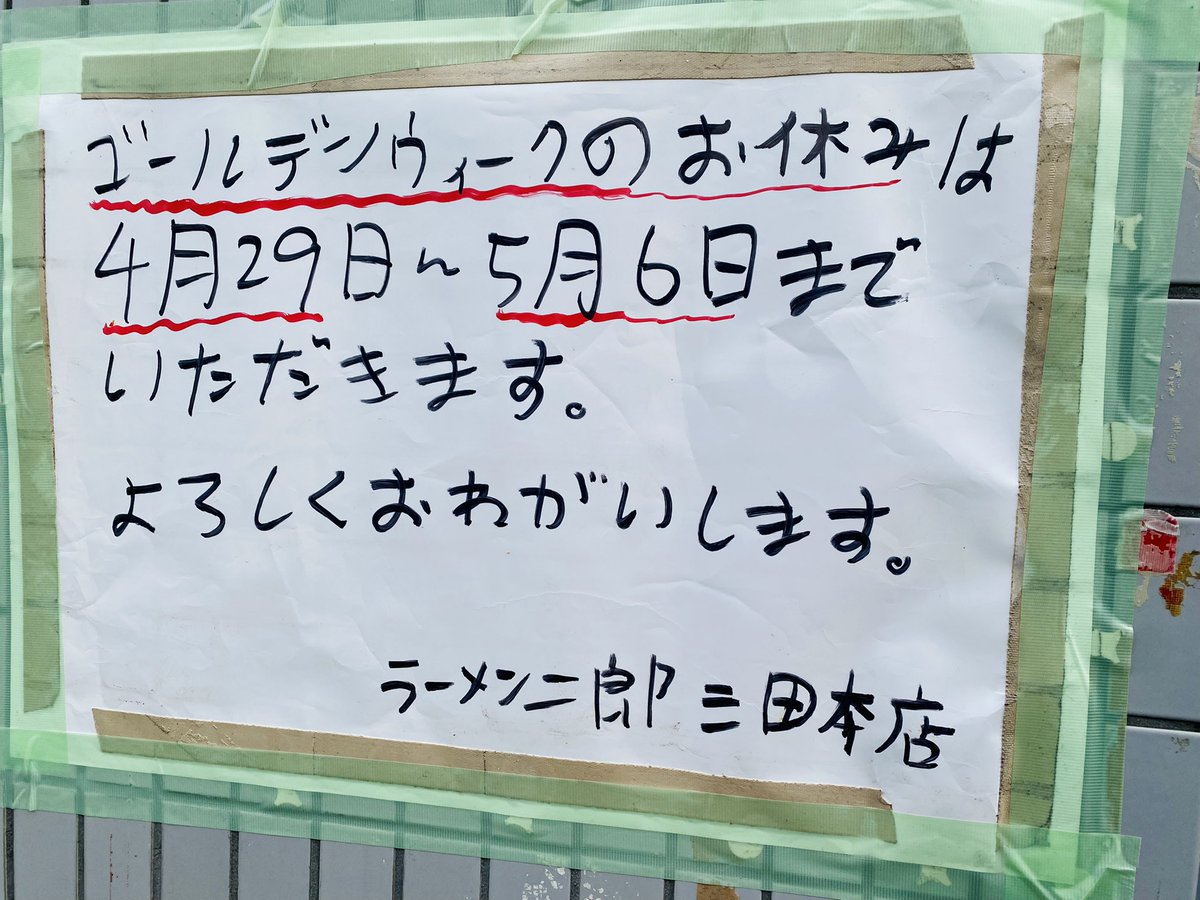 ゴールデンウィークのお休みは
4月29日~5月6日まで
いただきます。
よろしくおねがいします。
ラーメン二郎 三田本店